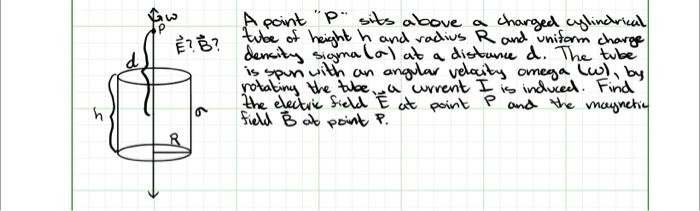 ω
P
E⃗? B⃗?
d
h
σ
R
A point "P" sits above a charged cylindrical
tube of height h and radius R and uniform charge
density sigma (σ) at a distance d. The tube
is spun with an angular velocity omega (ω), by
rotating the tube, a current I is induced. Find
the electric field E⃗ at point P and the magnetic
field B⃗ at point P.